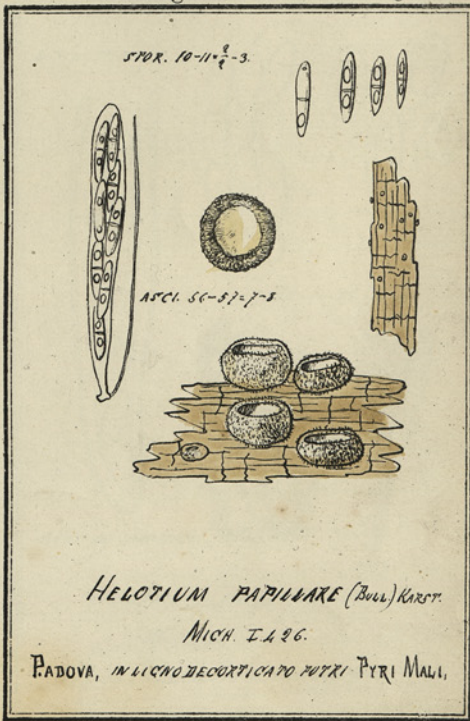 SPOR. 10-11=2/2-3.
ASCI. 56-57=7-8
HELOTIUM PAPILLARE (BULL) KARST.
MICH. I. 426.
PADOVA, IN LIGNO DECORTICATO PUTRI PYRI MALI,